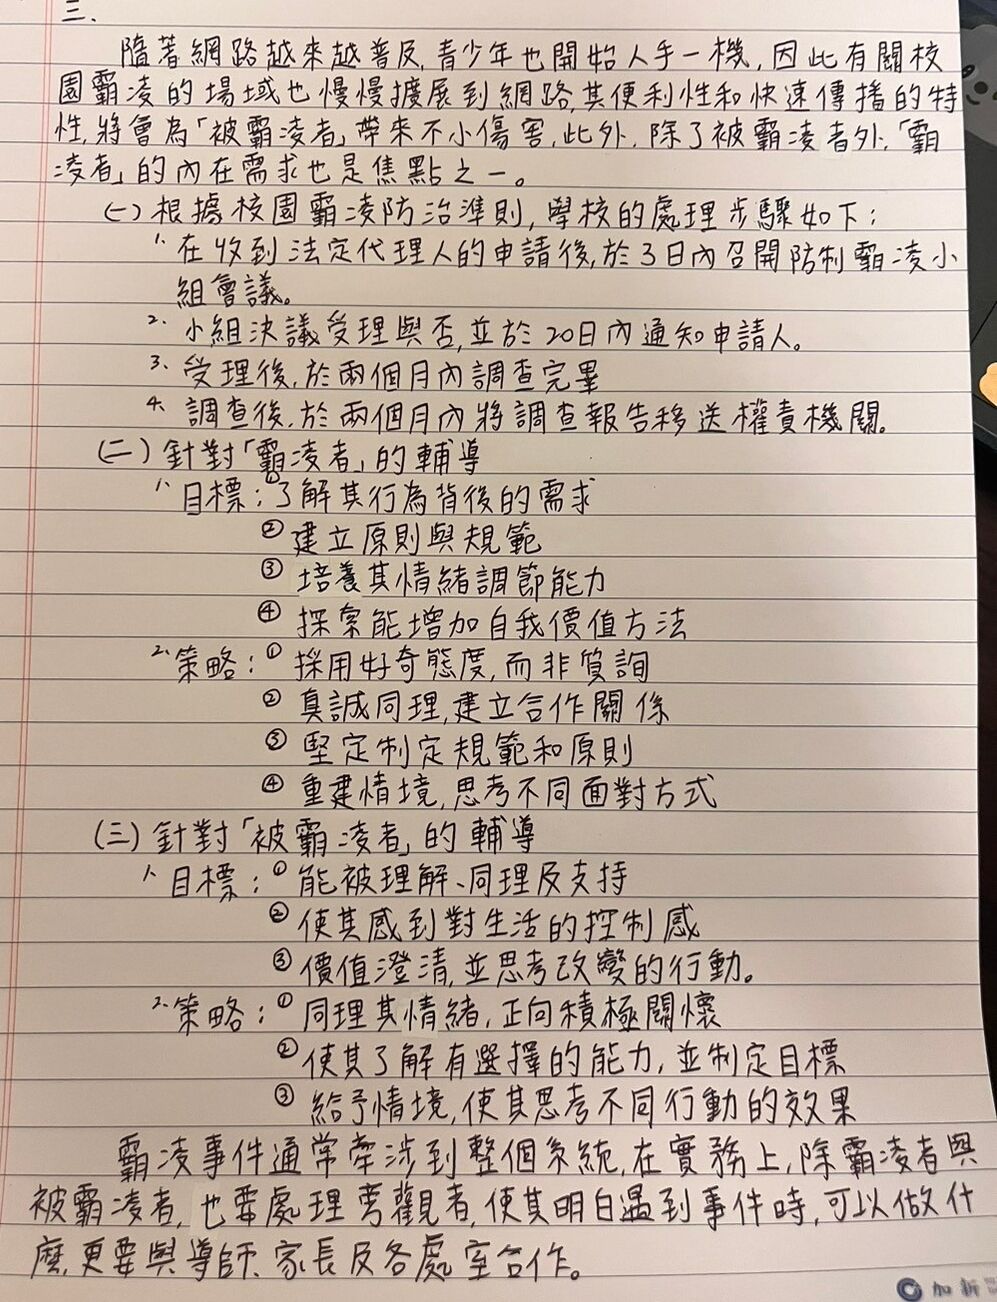 三、
隨著網路越來越普及,青少年也開始人手一機,因此有關校
園霸凌的場域也慢慢擴展到網路,其便利性和快速傳播的特
性,將會為「被霸凌者」帶來不小傷害,此外,除了被霸凌者外,「霸
凌者」的內在需求也是焦點之一。
(一)根據校園霸凌防治準則,學校的處理步驟如下:
1、在收到法定代理人的申請後,於3日內召開防制霸凌小
組會議。
2、小組決議受理與否,並於20日內通知申請人。
3、受理後,於兩個月內調查完畢
4、調查後,於兩個月內將調查報告移送權責機關。
(二)針對「霸凌者」的輔導
1、目標:①了解其行為背後的需求
②建立原則與規範
③培養其情緒調節能力
④探索能增加自我價值方法
2、策略:①採用好奇態度,而非質詢
②真誠同理,建立合作關係
③堅定制定規範和原則
④重建情境,思考不同面對方式
(三)針對「被霸凌者」的輔導
1、目標:①能被理解、同理及支持
②使其感到對生活的控制感
③價值澄清,並思考改變的行動。
2、策略:①同理其情緒,正向積極關懷
②使其了解有選擇的能力,並制定目標
③給予情境,使其思考不同行動的效果
霸凌事件通常牽涉到整個系統,在實務上,除霸凌者與
被霸凌者,也要處理旁觀者,使其明白遇到事件時,可以做什
麼,更要與導師、家長及各處室合作。
加新